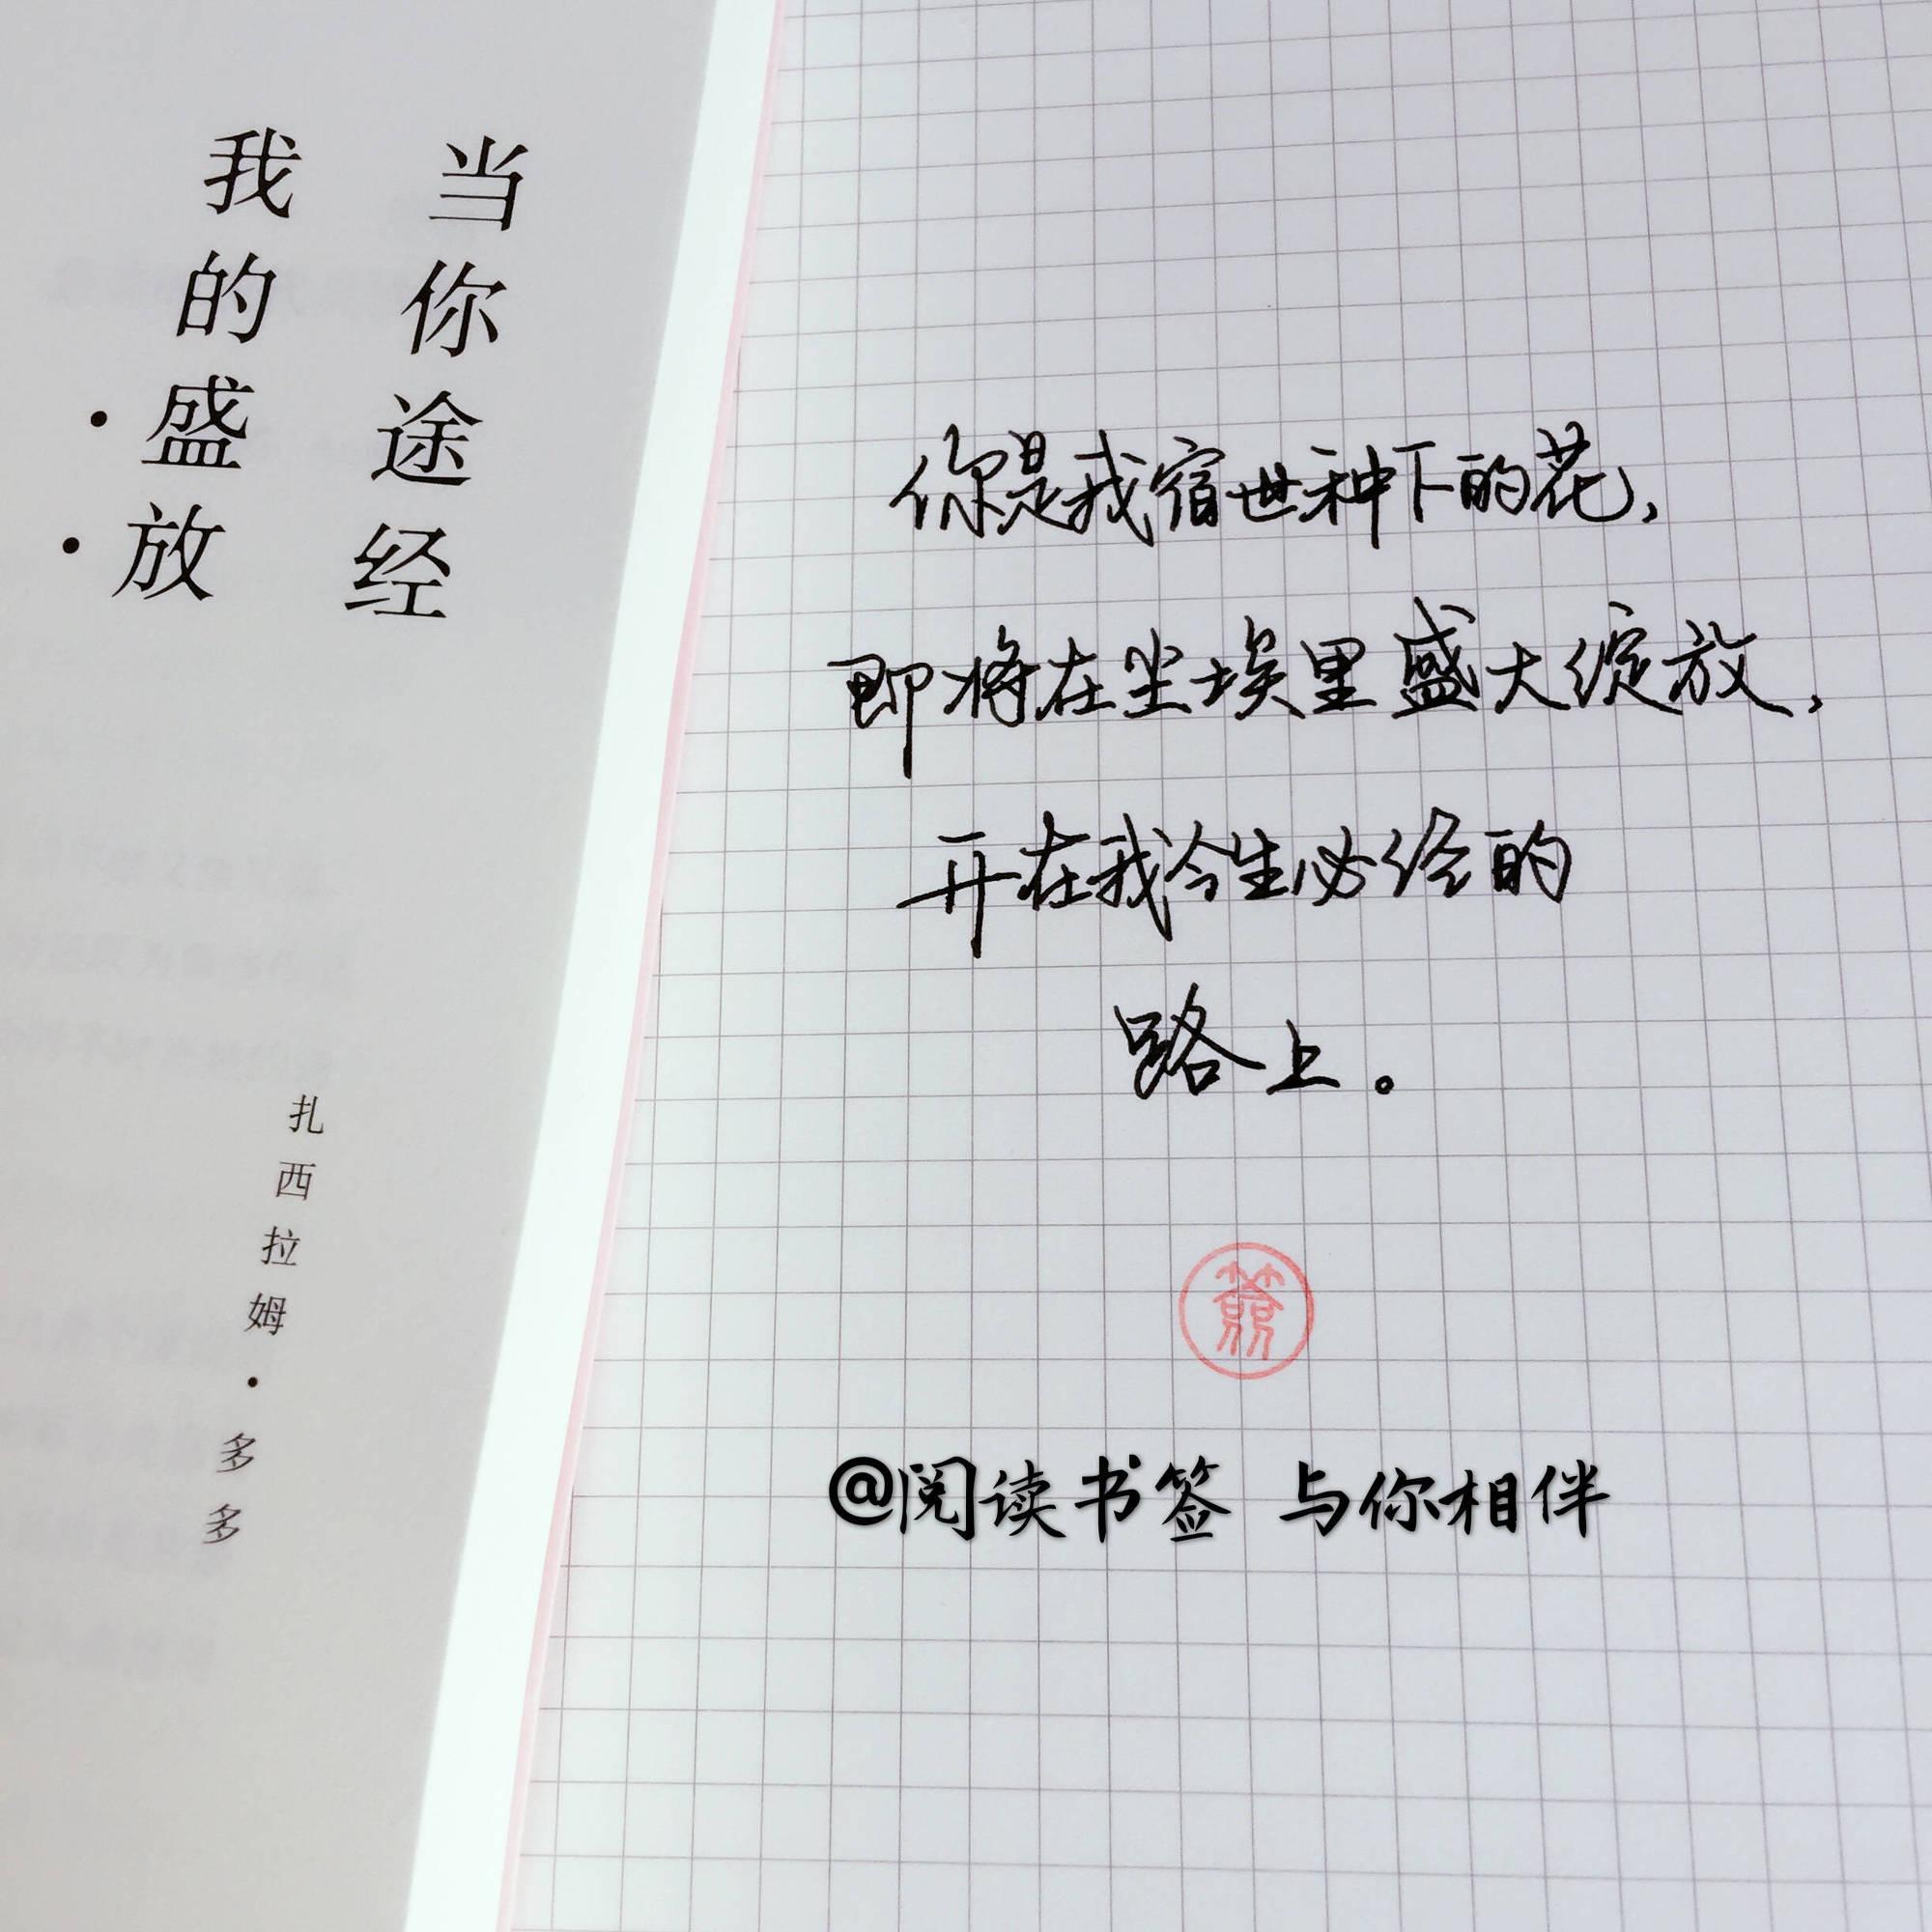 当你途经
我的盛放
扎西拉姆·多多
你是我宿世种下的花，
即将在尘埃里盛大绽放，
开在我今生必经的
路上。
@阅读书签 与你相伴